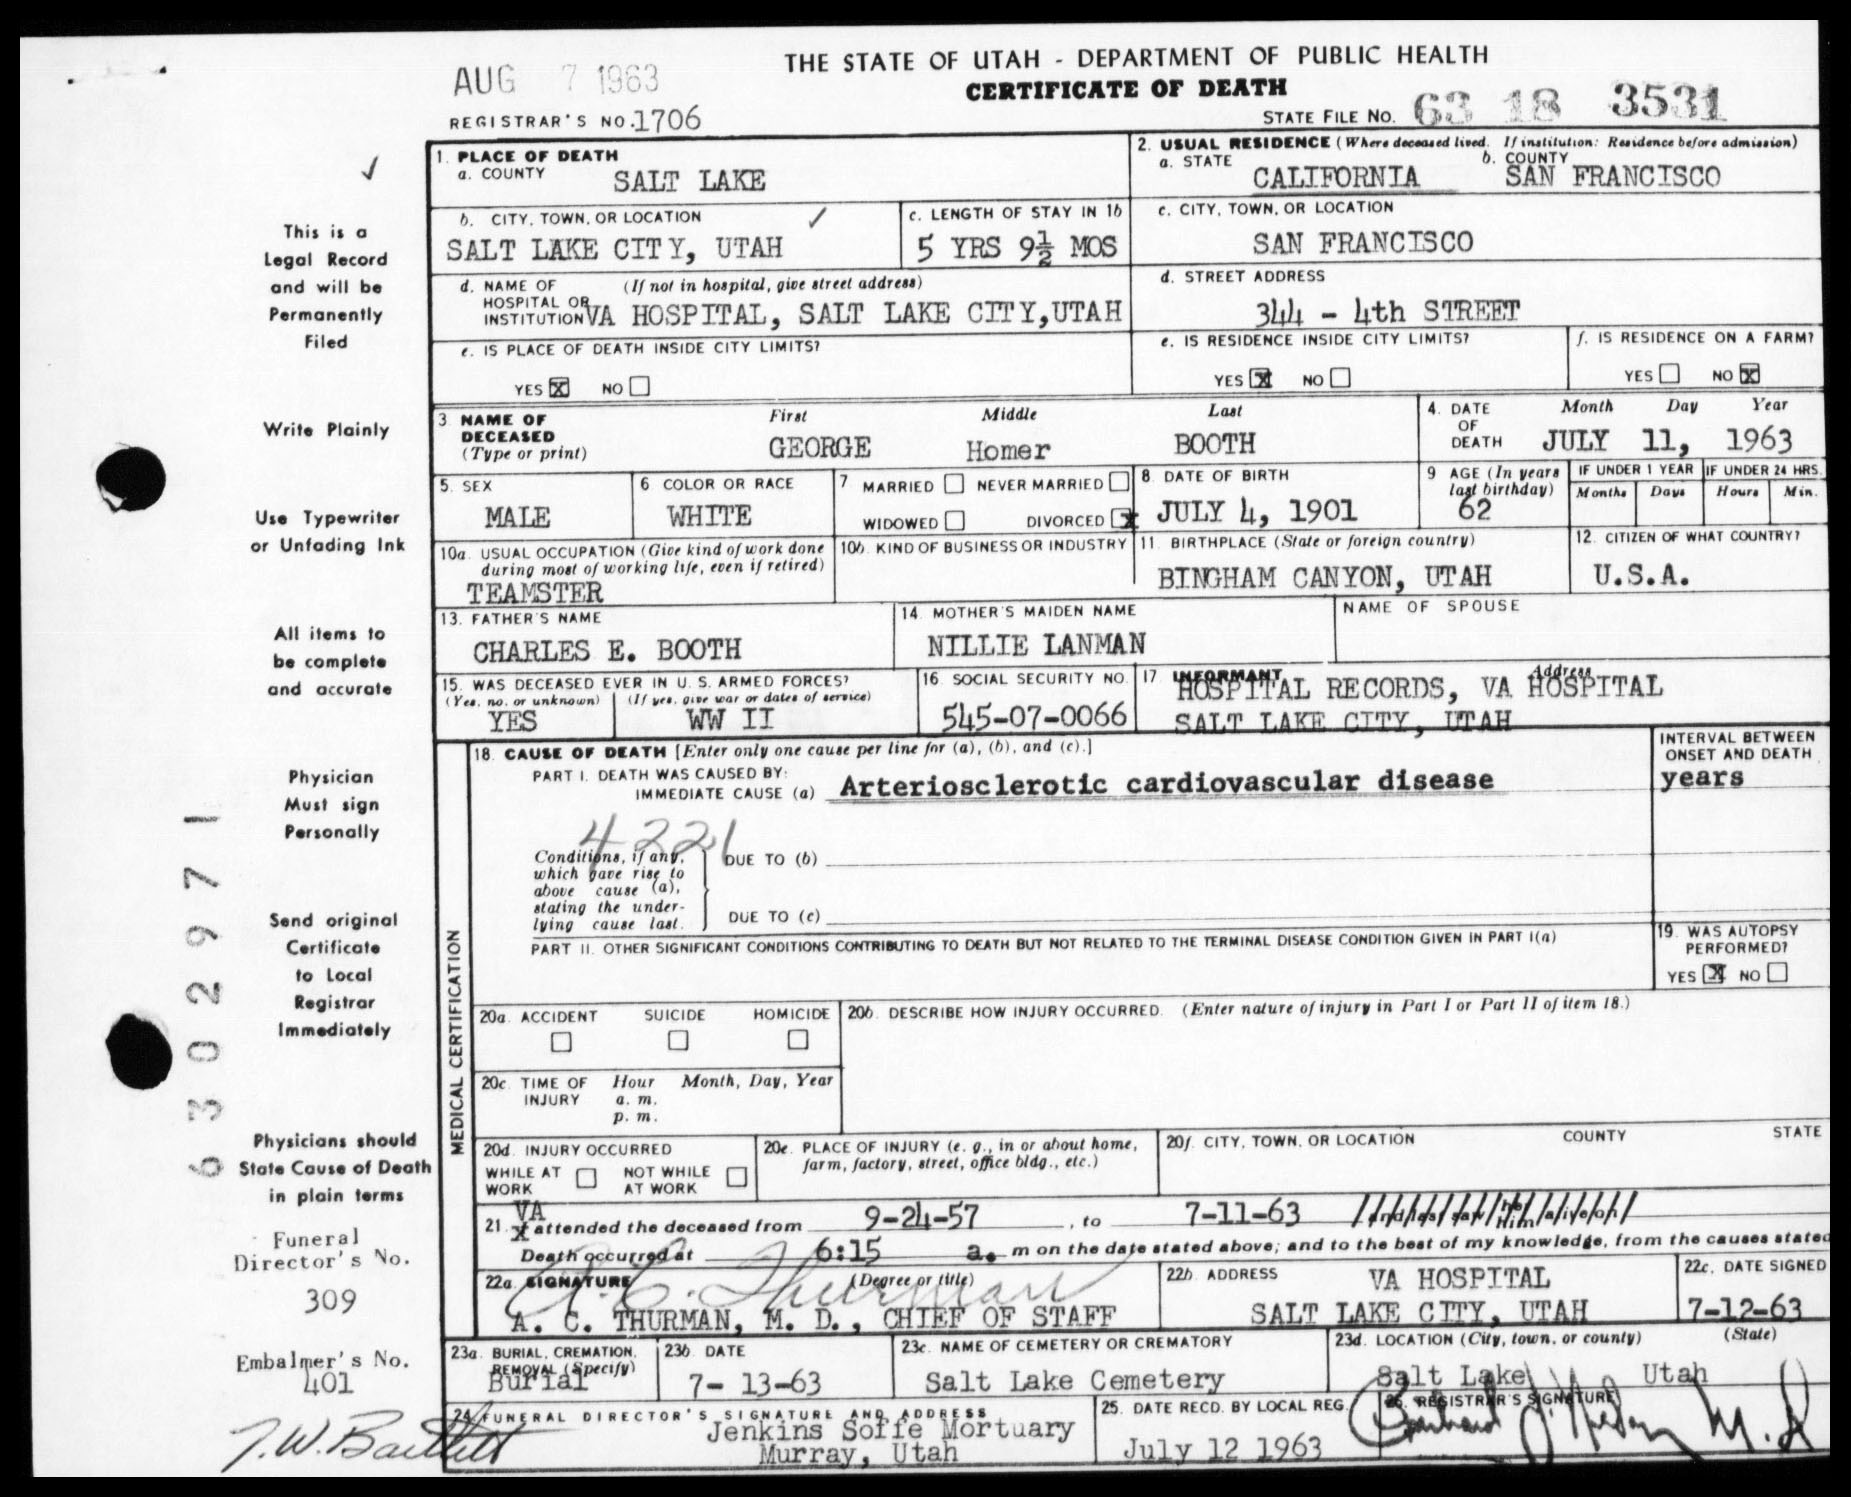 THE STATE OF UTAH - DEPARTMENT OF PUBLIC HEALTH
AUG 7 1963
CERTIFICATE OF DEATH
REGISTRAR'S NO. 1706
STATE FILE NO. 63 18 3531
1. PLACE OF DEATH
a. COUNTY SALT LAKE
2. USUAL RESIDENCE (Where deceased lived. If institution: Residence before admission)
a. STATE CALIFORNIA b. COUNTY SAN FRANCISCO
b. CITY, TOWN, OR LOCATION
SALT LAKE CITY, UTAH
c. LENGTH OF STAY IN 1b
5 YRS 9½ MOS
c. CITY, TOWN, OR LOCATION
SAN FRANCISCO
d. NAME OF HOSPITAL OR INSTITUTION (If not in hospital, give street address)
VA HOSPITAL, SALT LAKE CITY, UTAH
d. STREET ADDRESS
344 - 4th STREET
e. IS PLACE OF DEATH INSIDE CITY LIMITS?
YES X NO
e. IS RESIDENCE INSIDE CITY LIMITS?
YES X NO
f. IS RESIDENCE ON A FARM?
YES NO X
3. NAME OF DECEASED (Type or print)
First Middle Last
GEORGE Homer BOOTH
4. DATE OF DEATH Month Day Year
JULY 11, 1963
5. SEX
MALE
6 COLOR OR RACE
WHITE
7 MARRIED NEVER MARRIED
WIDOWED DIVORCED X
8. DATE OF BIRTH
JULY 4, 1901
9 AGE (In years last birthday)
62
IF UNDER 1 YEAR
Months Days
IF UNDER 24 HRS.
Hours Min.
10a. USUAL OCCUPATION (Give kind of work done during most of working life, even if retired)
TEAMSTER
10b. KIND OF BUSINESS OR INDUSTRY
11. BIRTHPLACE (State or foreign country)
BINGHAM CANYON, UTAH
12. CITIZEN OF WHAT COUNTRY?
U.S.A.
13. FATHER'S NAME
CHARLES E. BOOTH
14. MOTHER'S MAIDEN NAME
NILLIE LANMAN
NAME OF SPOUSE
15. WAS DECEASED EVER IN U. S. ARMED FORCES?
(Yes, no, or unknown) (If yes, give war or dates of service)
YES WW II
16. SOCIAL SECURITY NO.
545-07-0066
17. INFORMANT Address
HOSPITAL RECORDS, VA HOSPITAL
SALT LAKE CITY, UTAH
MEDICAL CERTIFICATION
18. CAUSE OF DEATH [Enter only one cause per line for (a), (b), and (c).]
PART I. DEATH WAS CAUSED BY:
IMMEDIATE CAUSE (a) Arteriosclerotic cardiovascular disease
INTERVAL BETWEEN ONSET AND DEATH
years
4221
Conditions, if any,
which gave rise to
above cause (a),
stating the under-
lying cause last.
DUE TO (b)
DUE TO (c)
PART II. OTHER SIGNIFICANT CONDITIONS CONTRIBUTING TO DEATH BUT NOT RELATED TO THE TERMINAL DISEASE CONDITION GIVEN IN PART I(a)
19. WAS AUTOPSY PERFORMED?
YES X NO
20a. ACCIDENT SUICIDE HOMICIDE
20b. DESCRIBE HOW INJURY OCCURRED. (Enter nature of injury in Part I or Part II of item 18.)
20c. TIME OF INJURY Hour Month, Day, Year
a. m.
p. m.
20d. INJURY OCCURRED
WHILE AT WORK NOT WHILE AT WORK
20e. PLACE OF INJURY (e. g., in or about home, farm, factory, street, office bldg., etc.)
20f. CITY, TOWN, OR LOCATION COUNTY STATE
VA
21. X attended the deceased from 9-24-57, to 7-11-63 and last saw him alive on
Death occurred at 6:15 a. m on the date stated above; and to the best of my knowledge, from the causes stated
22a. SIGNATURE (Degree or title)
A. C. Thurman
A. C. THURMAN, M. D., CHIEF OF STAFF
22b. ADDRESS VA HOSPITAL
SALT LAKE CITY, UTAH
22c. DATE SIGNED
7-12-63
23a. BURIAL, CREMATION, REMOVAL (Specify)
Burial
23b. DATE
7- 13-63
23c. NAME OF CEMETERY OR CREMATORY
Salt Lake Cemetery
23d. LOCATION (City, town, or county) (State)
Salt Lake Utah
24. FUNERAL DIRECTOR'S SIGNATURE AND ADDRESS
Jenkins Soffe Mortuary
Murray, Utah
T. W. Bartlett
25. DATE RECD. BY LOCAL REG.
July 12 1963
26. REGISTRAR'S SIGNATURE
M. D
This is a
Legal Record
and will be
Permanently
Filed
Write Plainly
Use Typewriter
or Unfading Ink
All items to
be complete
and accurate
Physician
Must sign
Personally
Send original
Certificate
to Local
Registrar
Immediately
Physicians should
State Cause of Death
in plain terms
Funeral
Director's No.
309
Embalmer's No.
401
6302971